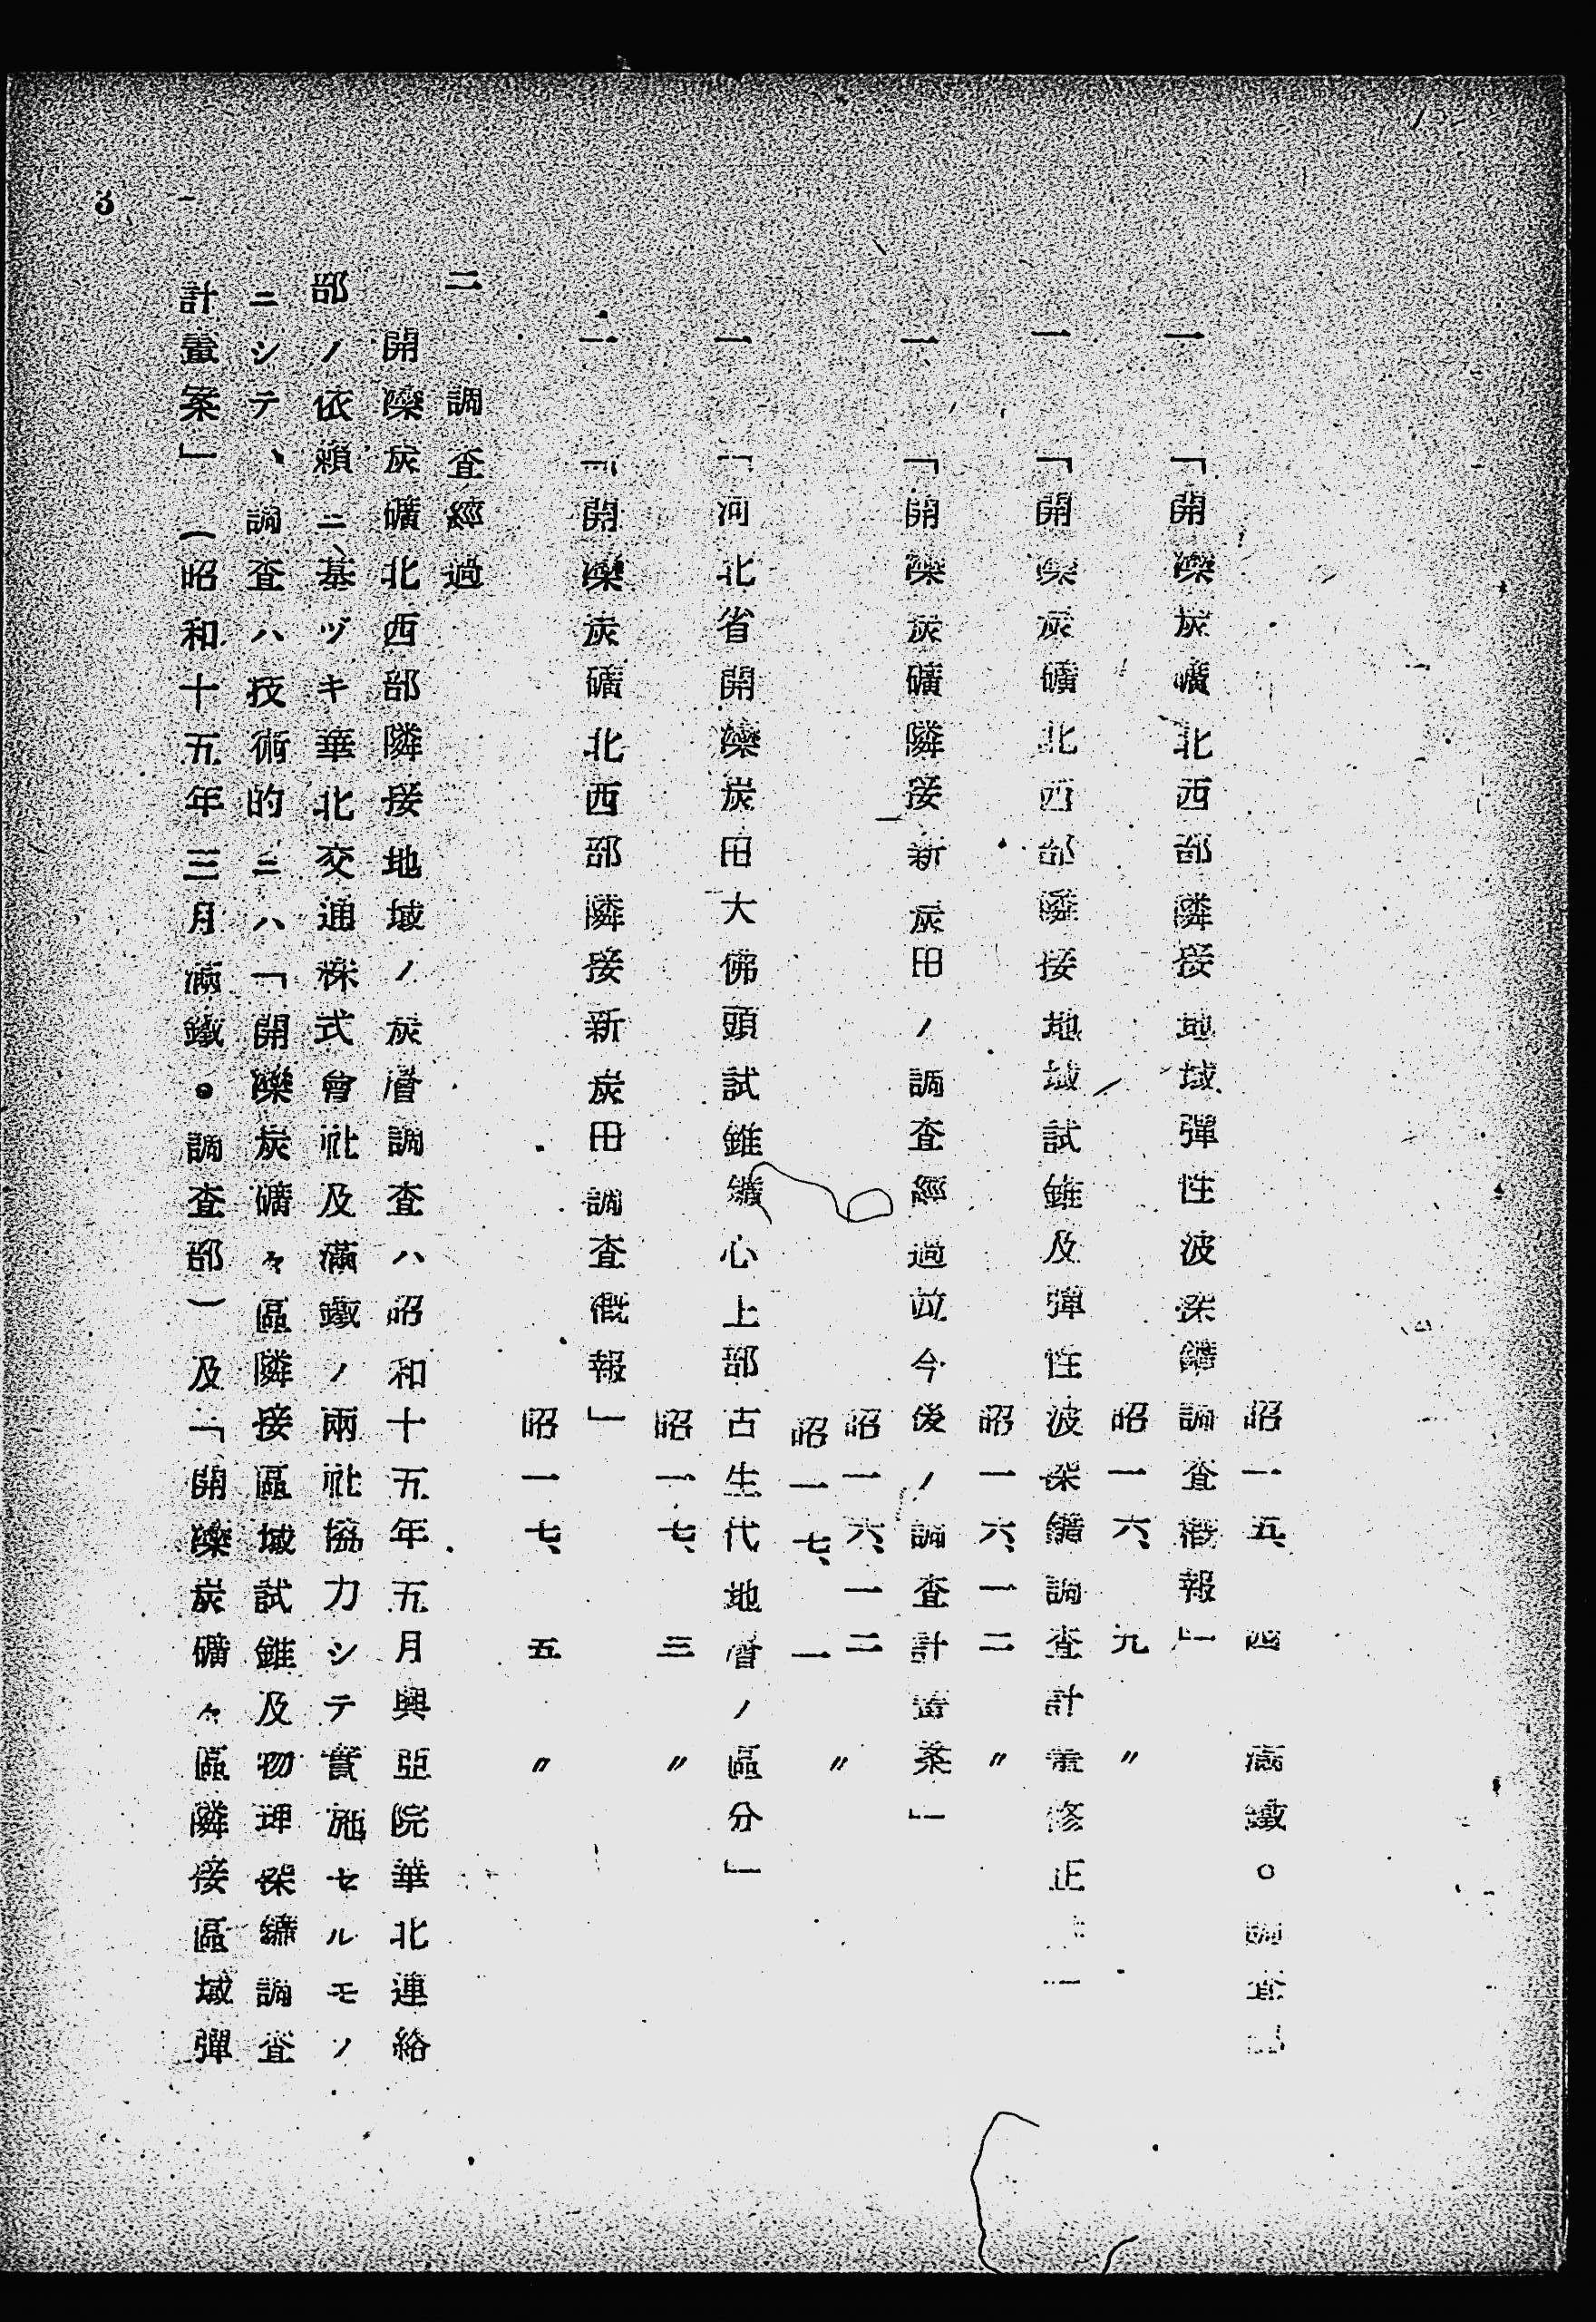 昭一五、四　滿鐵。調査部
一　「開灤炭礦北西部隣接地域彈性波探鑛調査概報」
昭一六、九　〃
一　「開灤炭礦北西部隣接地域試錐及彈性波探鑛調査計畫修正
昭一六、一二　〃
一、　「開灤炭礦隣接新炭田ノ調査經過竝今後ノ調査計畫案」
昭一六、一二
昭一七、一　〃
一　「河北省開灤炭田大佛頭試錐鑛心上部古生代地層ノ區分」
昭一七、三　〃
一　「開灤炭礦北西部隣接新炭田調査概報」
昭一七、五　〃
二　調査經過
開灤炭礦北西部隣接地域ノ炭層調査ハ昭和十五年五月興亞院華北連絡
部ノ依賴ニ基ヅキ華北交通株式會社及滿鐵ノ兩社協力シテ實施セルモノ
ニシテ、調査ハ技術的ニハ「開灤炭礦々區隣接區域試錐及物理探鑛調査
計畫案」（昭和十五年三月滿鐵。調査部）及「開灤炭礦々區隣接區域彈
3